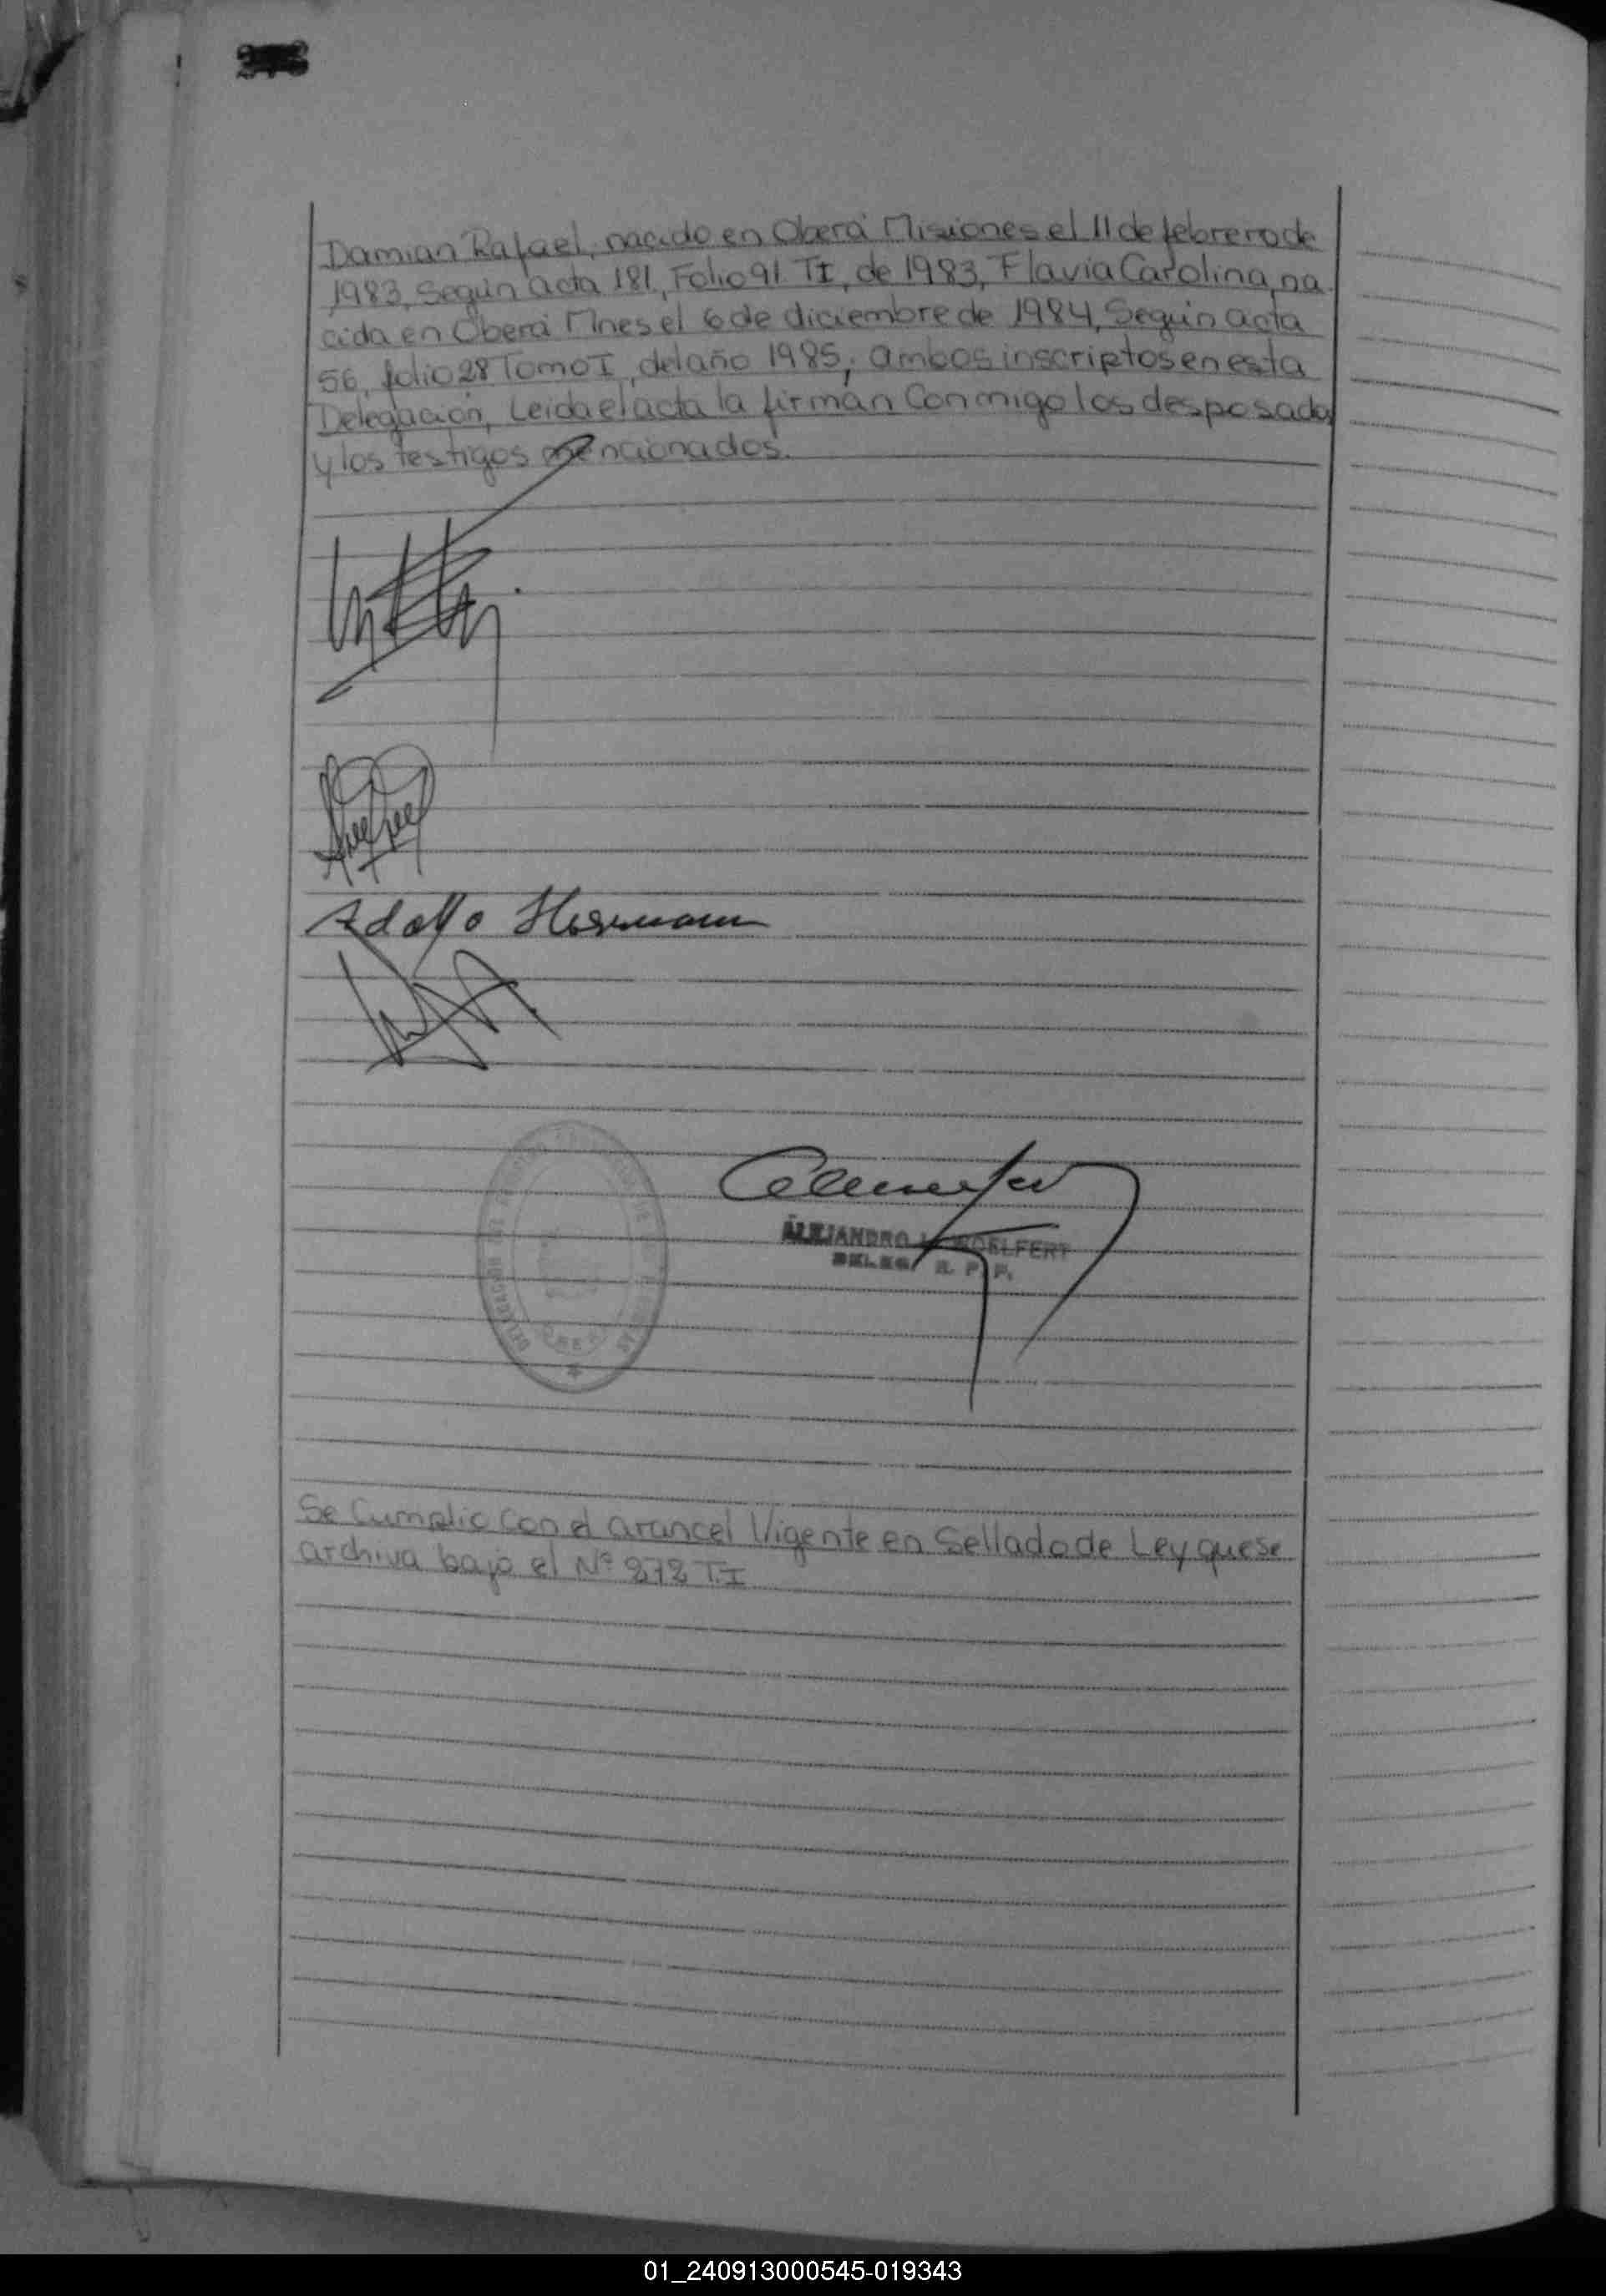 Damian Rafael, nacido en Oberá Misiones el 11 de febrero de
1983, Según acta 181, Folio 91 TI, de 1983, Flavia Carolina, na
cida en Oberá Mnes el 6 de diciembre de 1984, Según acta
56, folio 28 Tomo I, del año 1985, ambos inscriptos en esta
Delegación, Leida el acta la firman Conmigo los desposados
y los testigos mencionados.
Adolfo
ALEJANDRO WOELFERT
DELEG. R. P. P.
DELEGACION
Se Cumplio Con el arancel Vigente en Sellado de Ley que se
archiva bajo el Nº 272 T.I
01_240913000545-019343